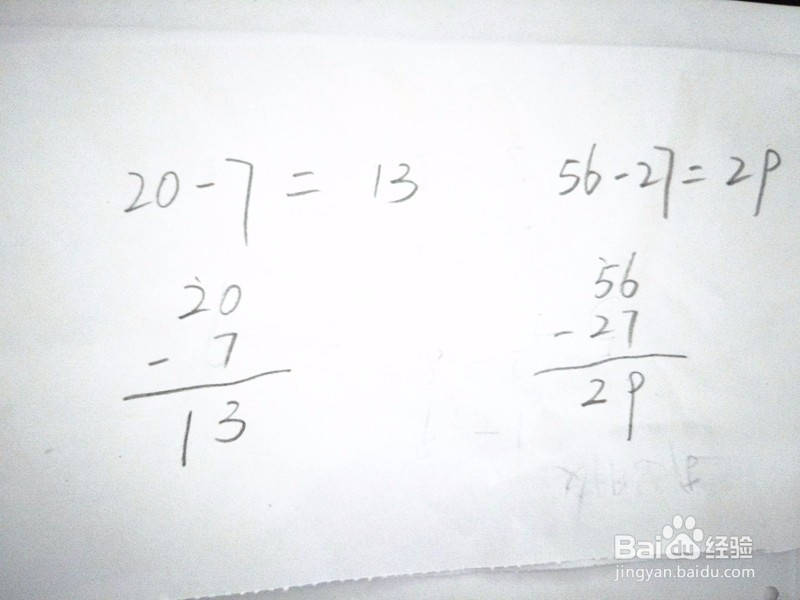 20-7= 13
56-27=29
20
- 7
13
56
- 27
29
Baidu经验
jingyan.baidu.com